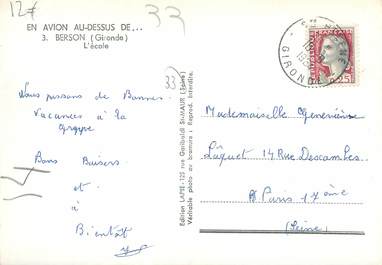 12€
33
EN AVION AU-DESSUS DE...
3. BERSON (Gironde)
L'école
GIRONDE
FRANÇAISE
0,25
33
Nous passons de Bonnes
Vacances à la
Bons Baisers
et
à
Bientôt
Edition LAPIE - 125 rue Garibaldi St-MAUR (Seine)
Véritable photo au bromure : Reprod. Interdite.
Mademoiselle Geneviève
Luquet 14 Rue Descombes
Paris 17ème
(Seine)